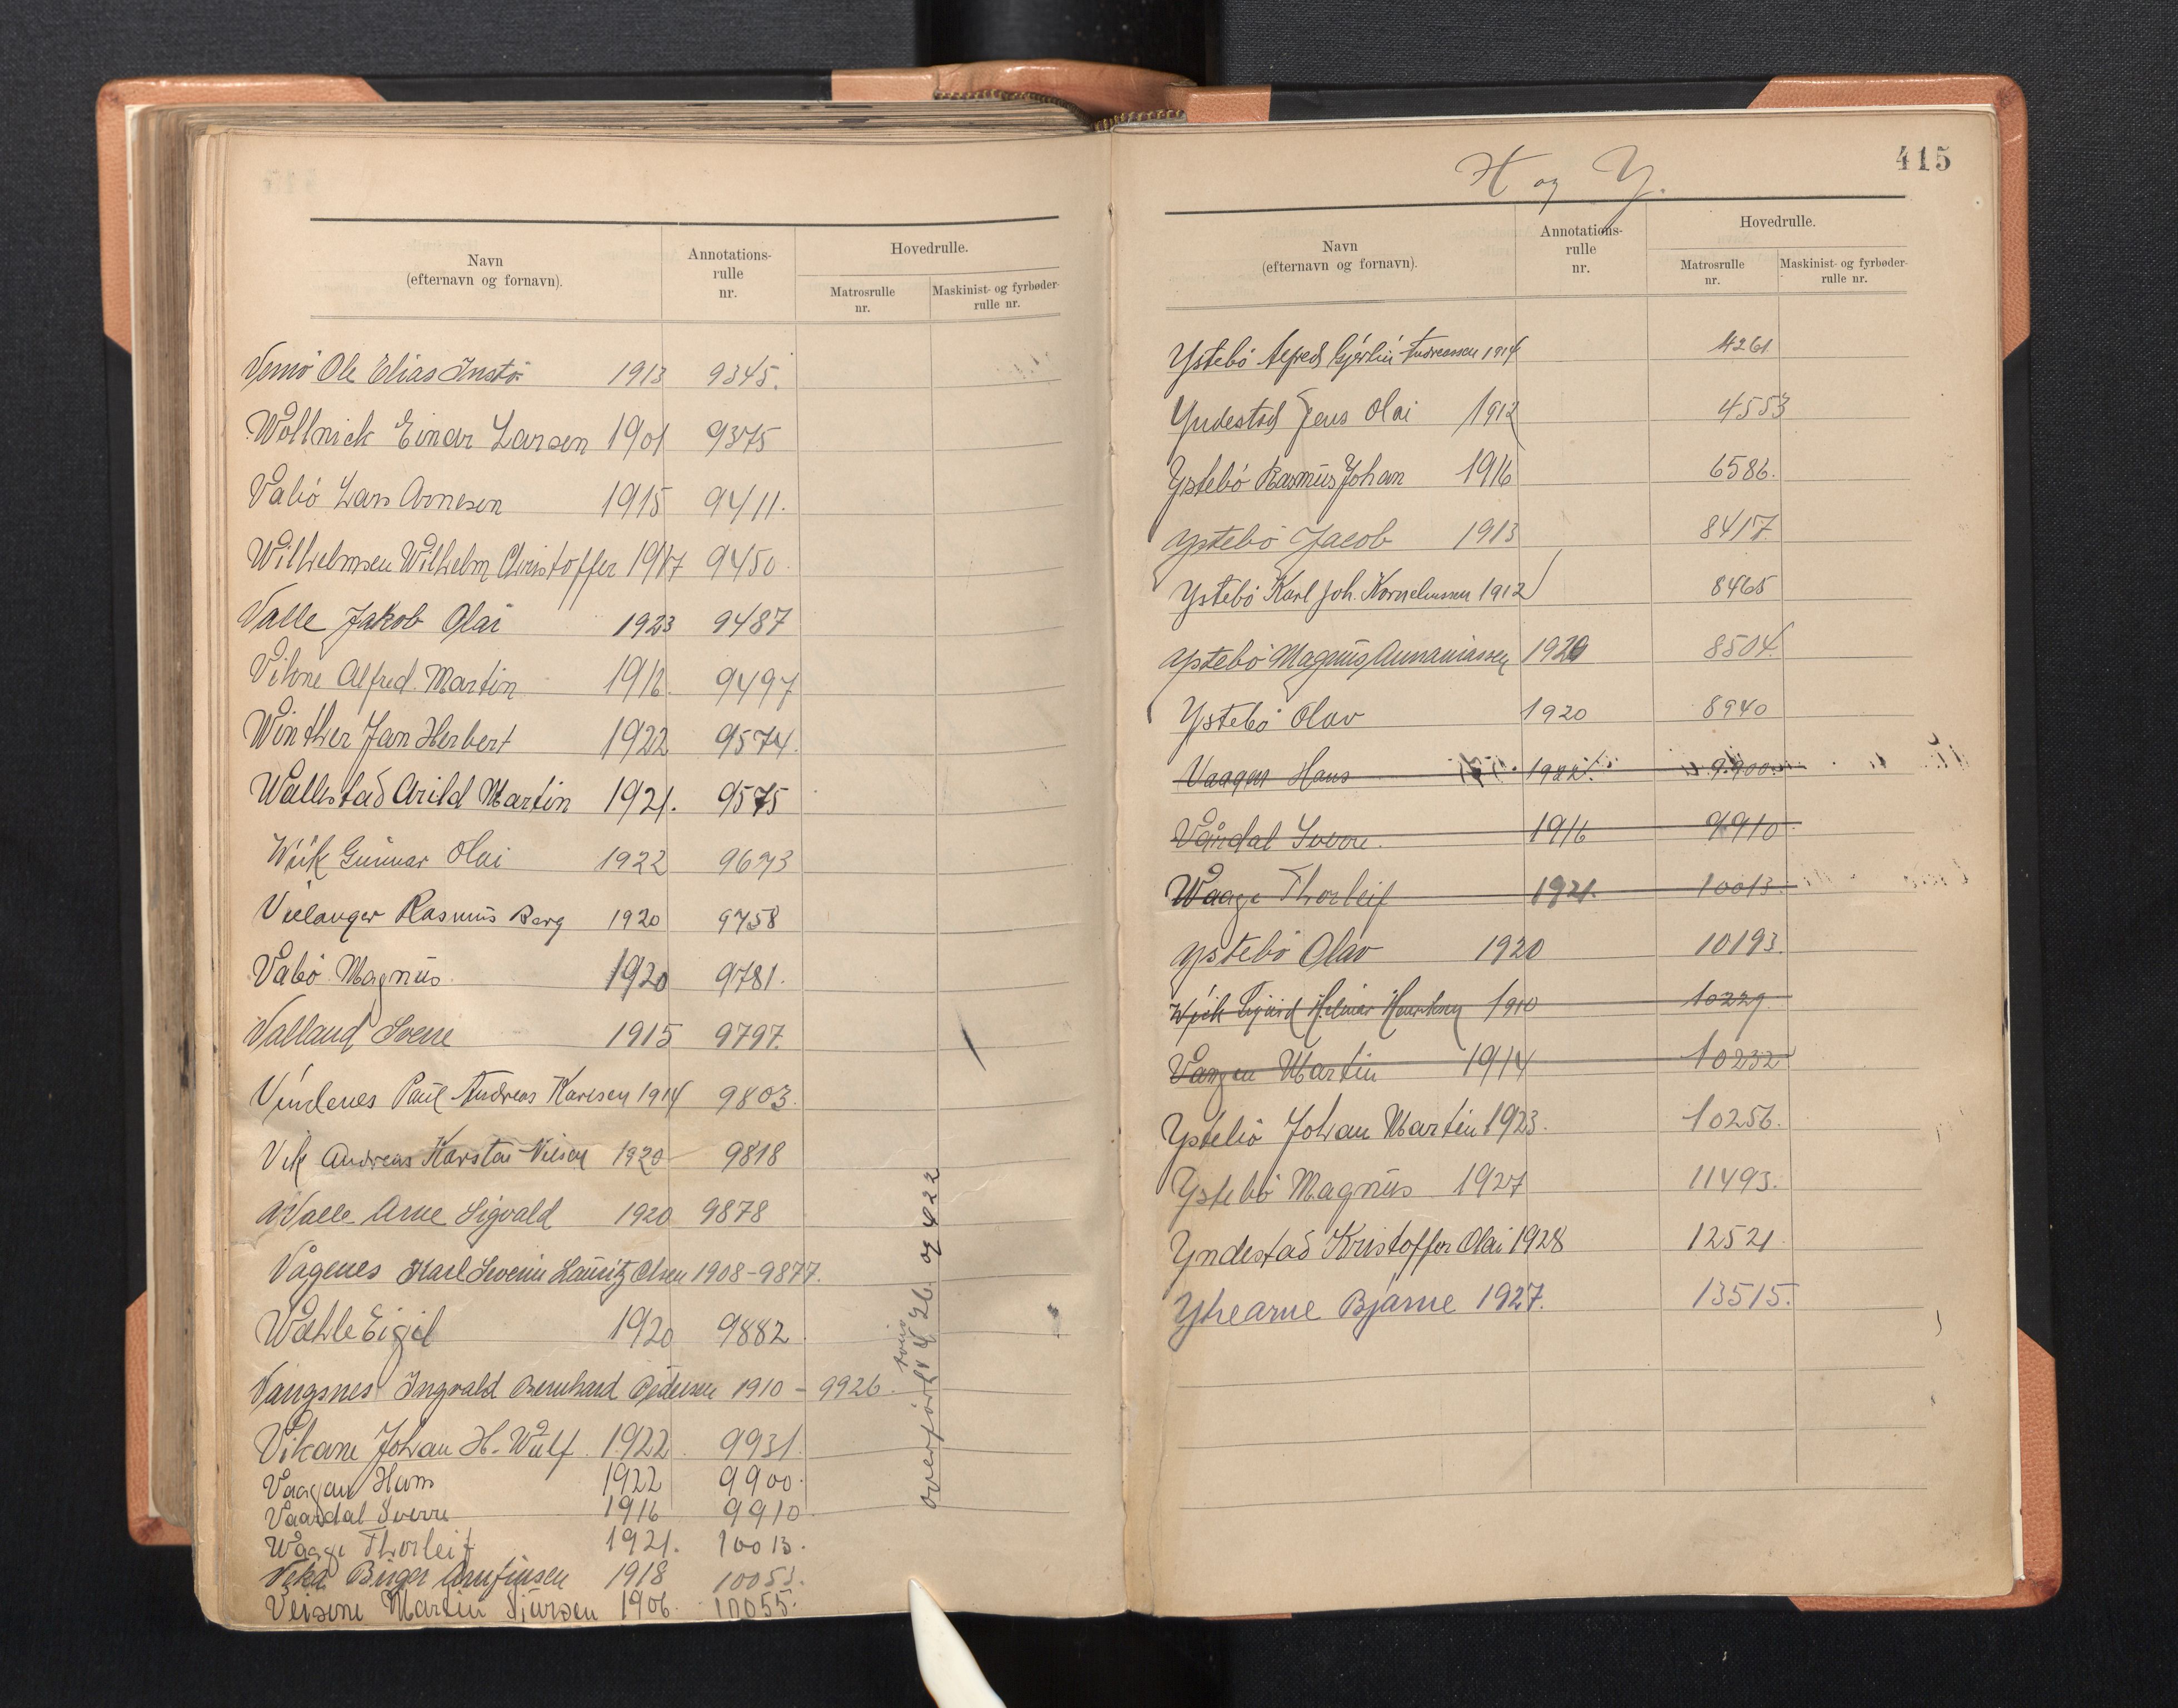 Navn
(efternavn og fornavn).
Annotations-
rulle
nr.
Hovedrulle.
Matrosrulle
nr.
Maskinist- og fyrbøder-
rulle nr.
Ole Elias 1913 9345.
Wollnick Einar Larsen 1901 9375
Vabö Lars Arnesen 1915 9411.
Wilhelmsen Wilhelm Christoffer 1917 9450
Valle Jakob Olai 1923 9487
Vikne Alfred Martin 9497
Winther Jan Herbert 1922 9574.
Wallestad Arild Martin 1921. 9575
Wiik Gunnar Olai 1922 9673
Rasmus Berg 1920 9758
Vabö Magnus 1920 9781.
Valland Sverre 1915 9797.
Vindenes Paul Andreas Karlsen 1914 9803.
Vik Andreas Karstai Nilsen 1920 9818
Valle Arne Sigvald 1920 9878
Vågenes Karl Severin Lauritz Olsen 1908-9877.
Wahle Eigil 1920 9882
Vangsnes Ingvald Bernhard Pedersen 1910 - 9926.
Vikane Johan H. Wulf 1922 9931.
Vaagan Hans 1922 9900.
Vaardal Sverre 1916 9910
Waage Thorleif 1921. 10013.
Birger Arnfinsen 1918 10053.
Martin Sjursen 1906. 10055.
overført og 422
415
H og Y.
Navn
(efternavn og fornavn).
Annotations-
rulle
nr.
Hovedrulle.
Matrosrulle
nr.
Maskinist- og fyrbøder-
rulle nr.
Ystebö Alfred Andreassen 1914 4261
Yndestad Jens Olai 1912 4553
Ystebö Rasmus Johan 1916 6586.
Ystebö Jacob 1913 8417
Ystebö Karl Joh. Korneliussen 1912 8465
Ystebö Magnus Annaniassen 8504.
Ystebö Olav 1920 8940
Vaagan Hans 1922. 9900
Vårdal Sverre. 1916 9910
Waage Thorleif 1921. 10013.
Ystebö Olav 1920 10193.
Wiik Sigurd Helmer 1910 10229.
Vangen Martin 1914 10232
Ystebö Johan Martin 1923. 10256.
Ystebö Magnus 1927 11493.
Yndestad Kristoffer Olai 1928 12521
Ytrearne Bjarne 1927. 13515.